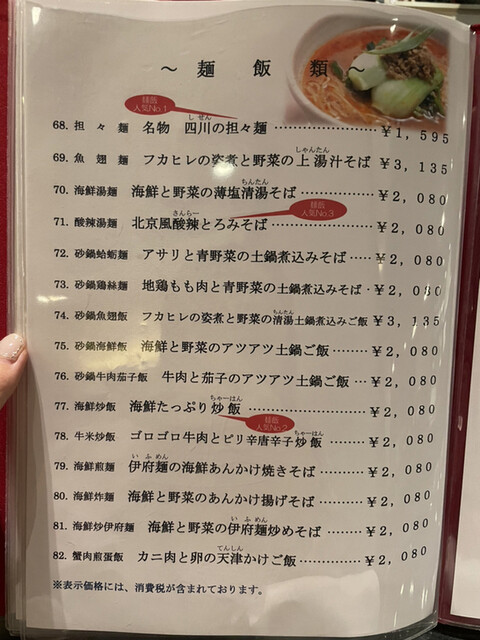 ～ 麺 飯 類 ～
麺飯
人気No.1
68. 担々麺 名物 四川の担々麺 ……………… ￥1,595
しせん
69. 魚翅麺 フカヒレの姿煮と野菜の上湯汁そば ￥3,135
しゃんたん
70. 海鮮湯麺 海鮮と野菜の薄塩清湯そば ………… ￥2,080
ちんたん
71. 酸辣湯麺 北京風酸辣とろみそば ……………… ￥2,080
さんらー
麺飯
人気No.3
72. 砂鍋蛤蜊麺 アサリと青野菜の土鍋煮込みそば …… ￥2,080
73. 砂鍋鶏絲麺 地鶏もも肉と青野菜の土鍋煮込みそば・￥2,080
74. 砂鍋魚翅飯 フカヒレの姿煮と野菜の清湯土鍋煮込みご飯 ￥3,135
ちんたん
75. 砂鍋海鮮飯 海鮮と野菜のアツアツ土鍋ご飯 ……… ￥2,080
76. 砂鍋牛肉茄子飯 牛肉と茄子のアツアツ土鍋ご飯 … ￥2,080
77. 海鮮炒飯 海鮮たっぷり炒飯 …………………… ￥2,080
ちゃーはん
麺飯
人気No.2
78. 牛米炒飯 ゴロゴロ牛肉とピリ辛唐辛子炒飯 …… ￥2,080
ちゃーはん
79. 海鮮煎麺 伊府麺の海鮮あんかけ焼きそば ……… ￥2,080
いふめん
80. 海鮮炸麺 海鮮と野菜のあんかけ揚げそば ……… ￥2,080
81. 海鮮炒伊府麺 海鮮と野菜の伊府麺炒めそば …… ￥2,080
いふめん
82. 蟹肉煎蛋飯 カニ肉と卵の天津かけご飯 ………… ￥2,080
てんしん
※表示価格には、消費税が含まれております。